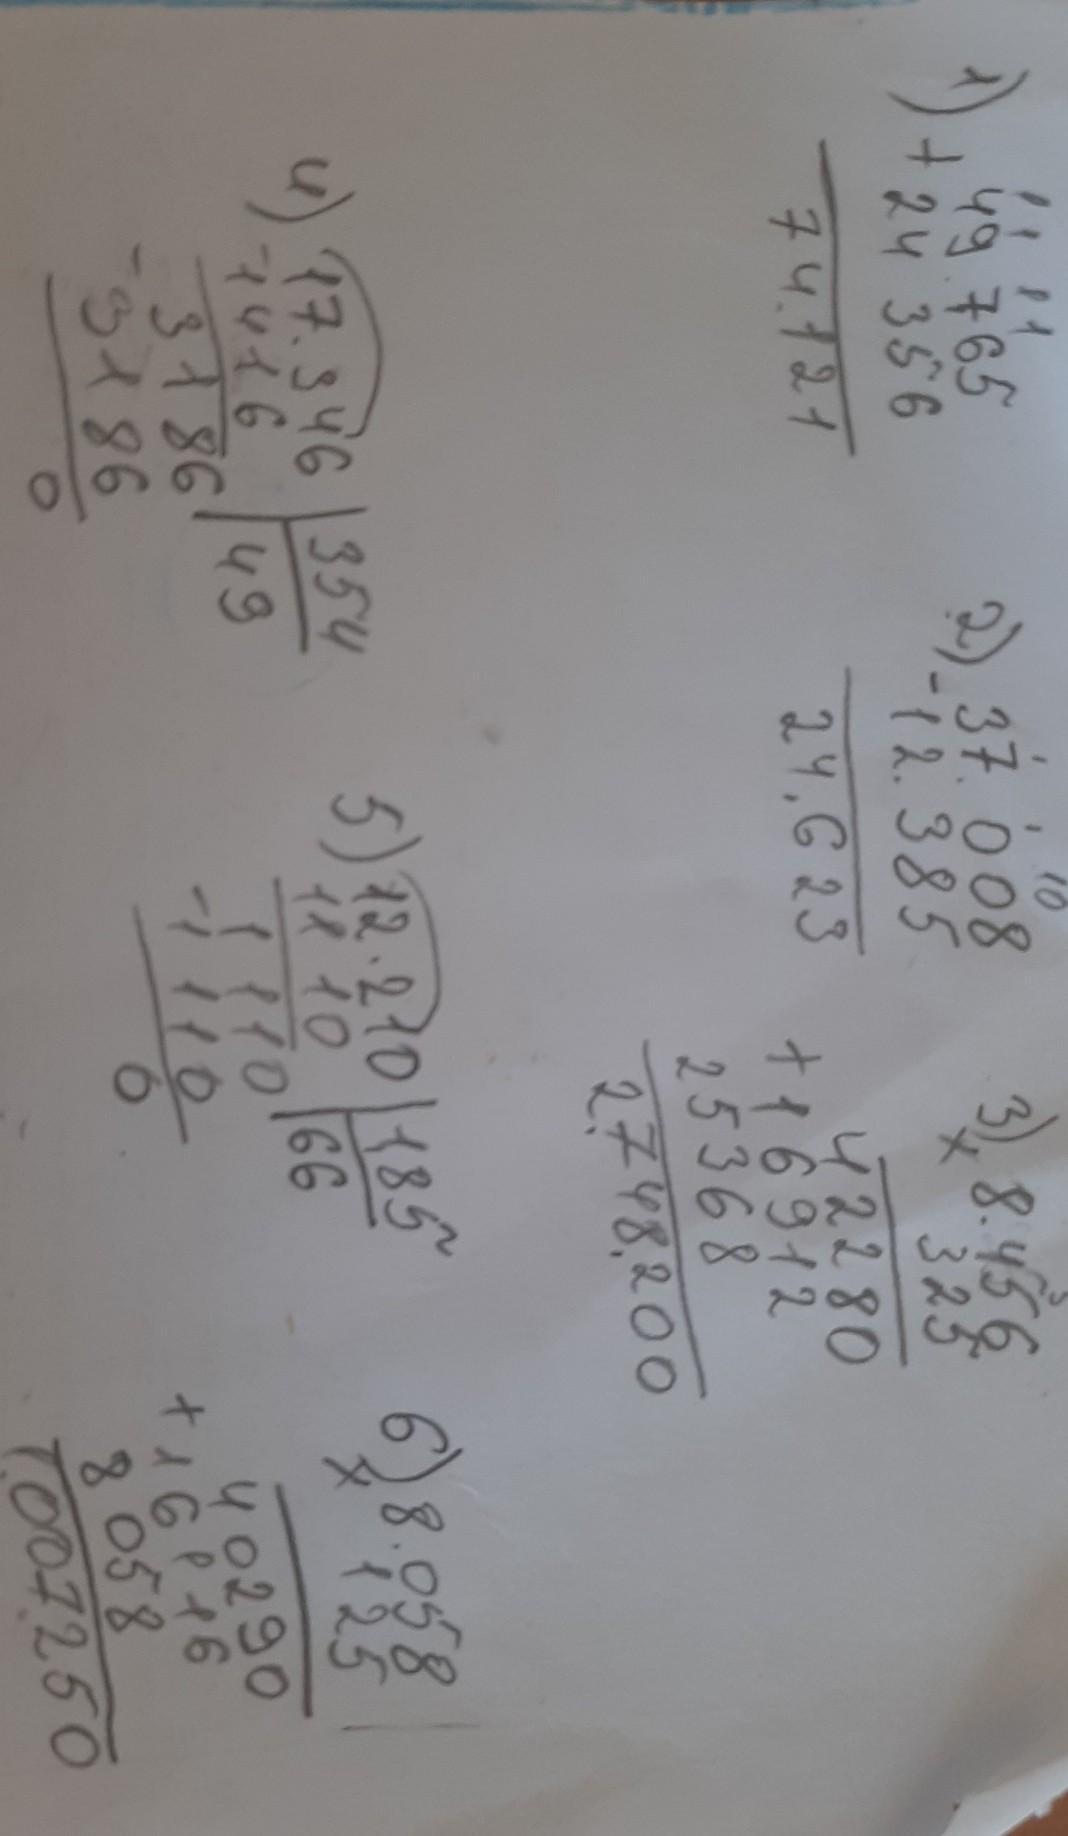 1)
1 1 1 1
+ 49.765
24 356
74.121
2)
10
- 37.008
12.385
24.623
3)
x 8.456
325
42280
+ 16912
25368
2.748.200
4) 17.346 | 354
- 1416 | 49
3186
- 3186
0
5) 12.210 | 185
1110 | 66
1110
- 1110
0
6) x 8.058
125
40290
+ 16116
8058
1.007.250